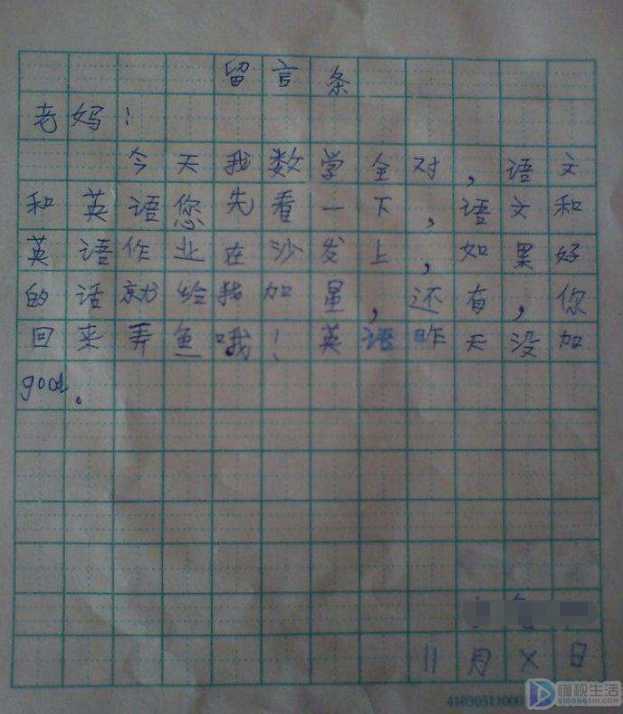 留言条
老妈！
今天我数学全对，语文
和英语您先看一下，语文和
英语作业在沙发上，如果好
的话就给我加量，还有，你
回来弄鱼哦！英语昨天没加
good。
11月X日
懂视生活